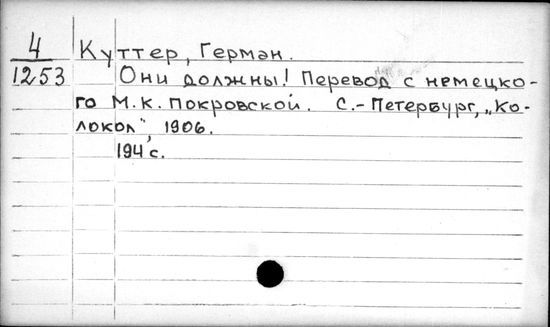 4
1253
Куттер, Герман.
Они должны! Перевод с немецко-
го М.К. Покровской. С.-Петербург, „Ко-
локол", 1906.
194 с.